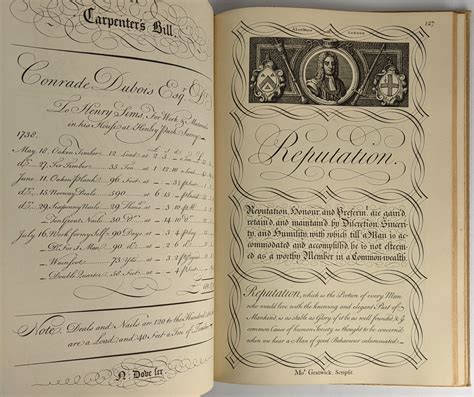 A
Carpenter's Bill.
Conrade Dubois Esqr. Dr.
To Henry Sims, For Work & Materials
in his House at Henley Park Surry
1732.
May. 12. Oaken Timber 12 Load at 2 5
do. 27. Fir Timber 35 do. at
June. 11. Oaken Plank 96 Foot at 3
do. 15. Norway Deals 590 at
do. 29. Nails 30 at
Ten Groat Nails do. at
July. 16. Work for my Self 90 Days at 3
Do. For A Man 90 do. at
Wainscot 73 Yds at
Double Quarter 56 Foot at
Note, Deals and Nails are 120 to the Hundred
are a Load and 40 Feet a Ton of Timber
N. Dove scr.
127
London
Reputation.
Reputation, Honour, and Prefermt. are gain'd,
retain'd, and maintain'd by Discretion, Sinceri-
ty, and Humility, with which till a Man is ac-
commodated and accomplish'd, he is not esteem-
ed as a worthy Member in a Common-wealth.
Reputation, which is the Portion of every Man
who would live with the knowing and elegant Part of
Mankind, is as stable as Glory, if it be as well founded; & ye
common Cause of human Society is thought to be concern'd
when we hear a Man of good Behaviour calumniated.
Mos. Gratwick, Scripsit.